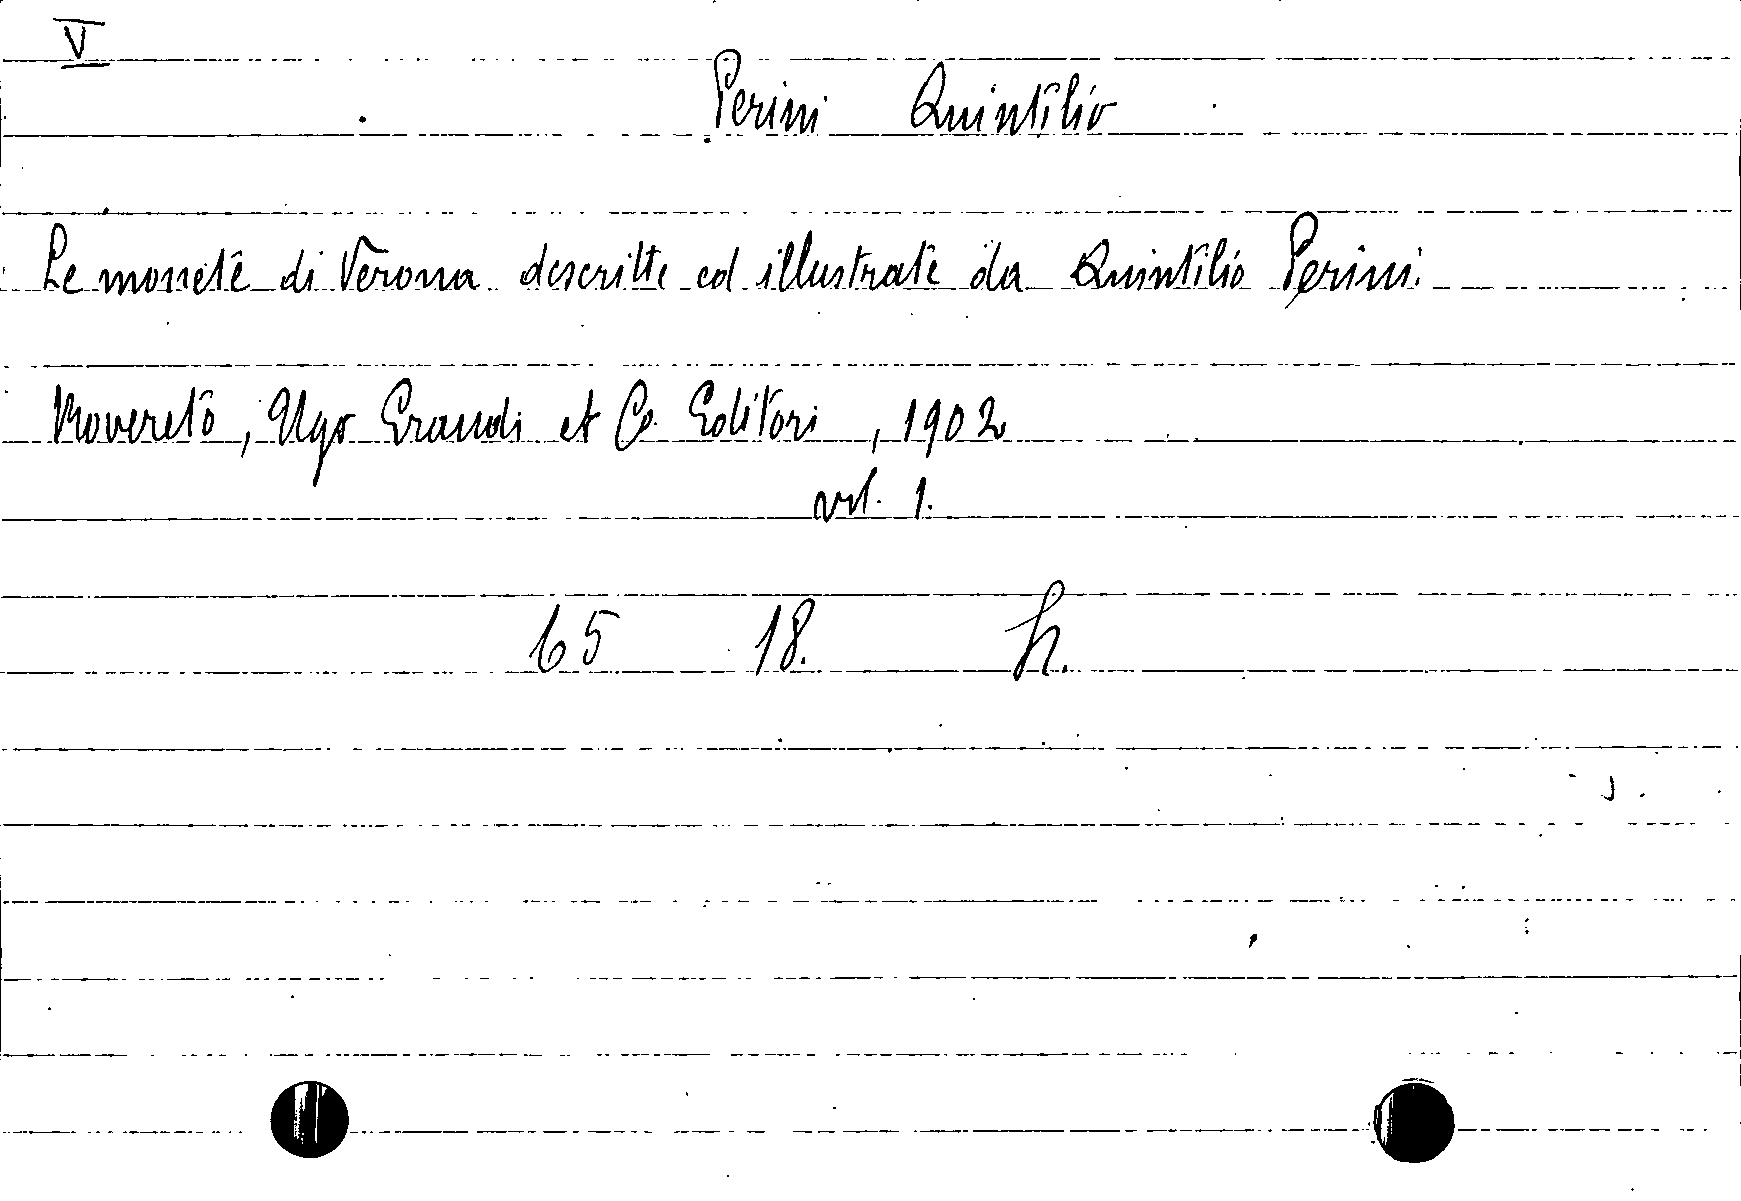 V
Perini Quintilio
Le monete di Verona descritte ed illustrate da Quintilio Perini.
Rovereto, Ugo Grandi et C. Editori, 1902
vol. 1.
65 18. h.